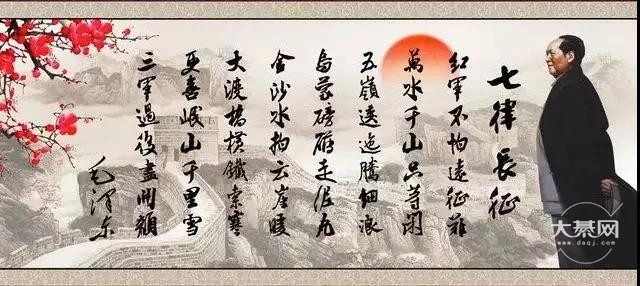 七律長征
红軍不怕遠征难
萬水千山只等闲
五嶺逶迤騰细浪
烏蒙磅礴走泥丸
金沙水拍云崖暖
大渡橋横鐵索寒
更喜岷山千里雪
三軍過後盡開顏
毛澤东
大綦网
www.daqj.com